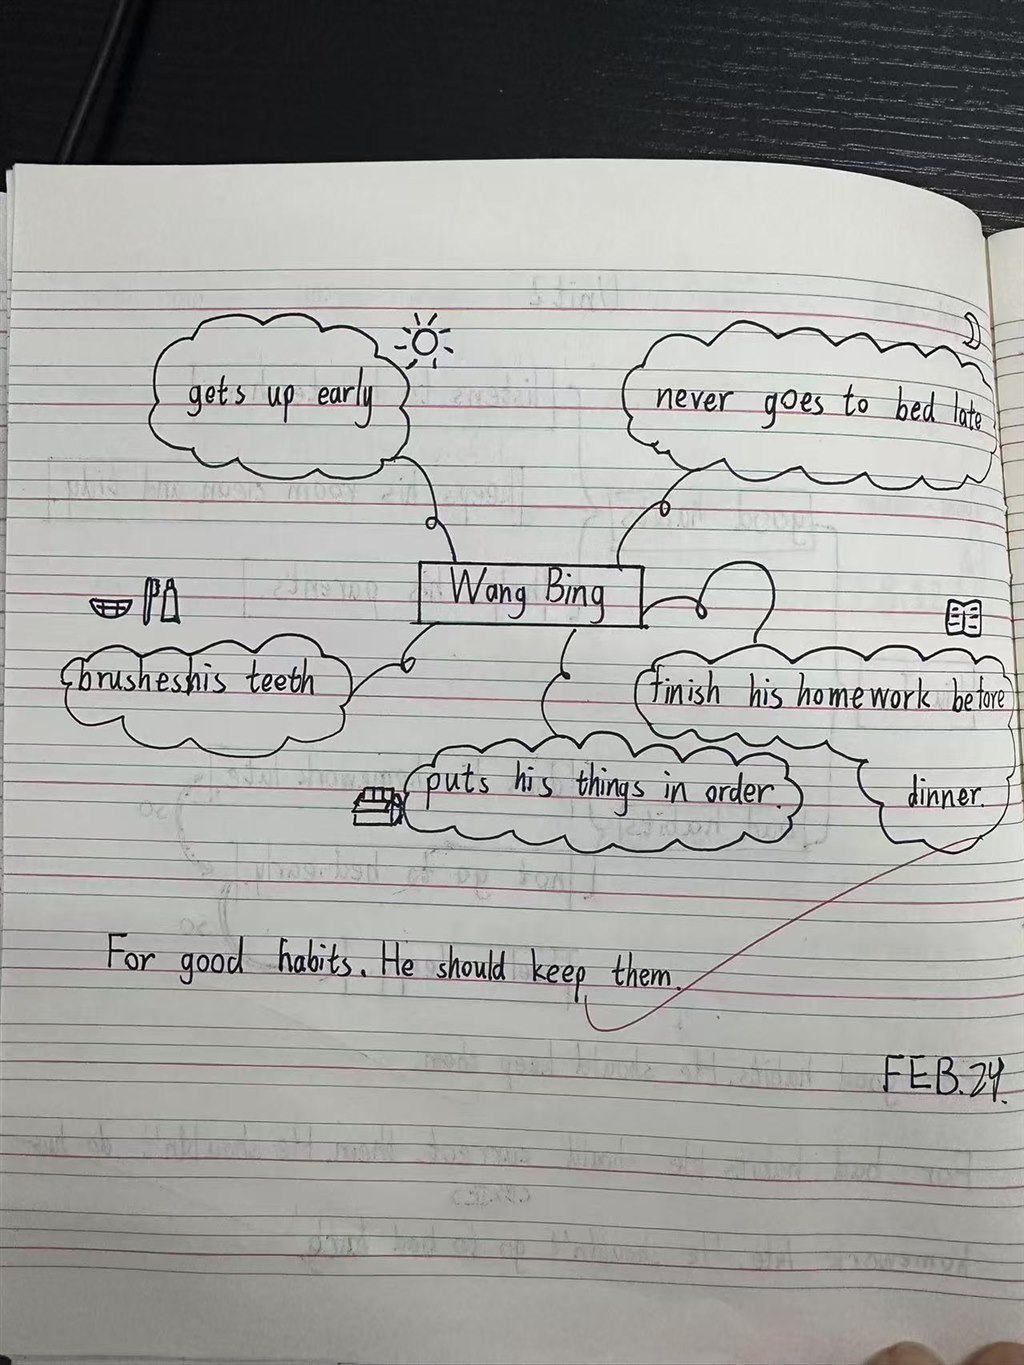 gets up early
never goes to bed late
Wang Bing
brushes his teeth
finish his homework before
dinner.
puts his things in order.
For good habits. He should keep them.
FEB.24.